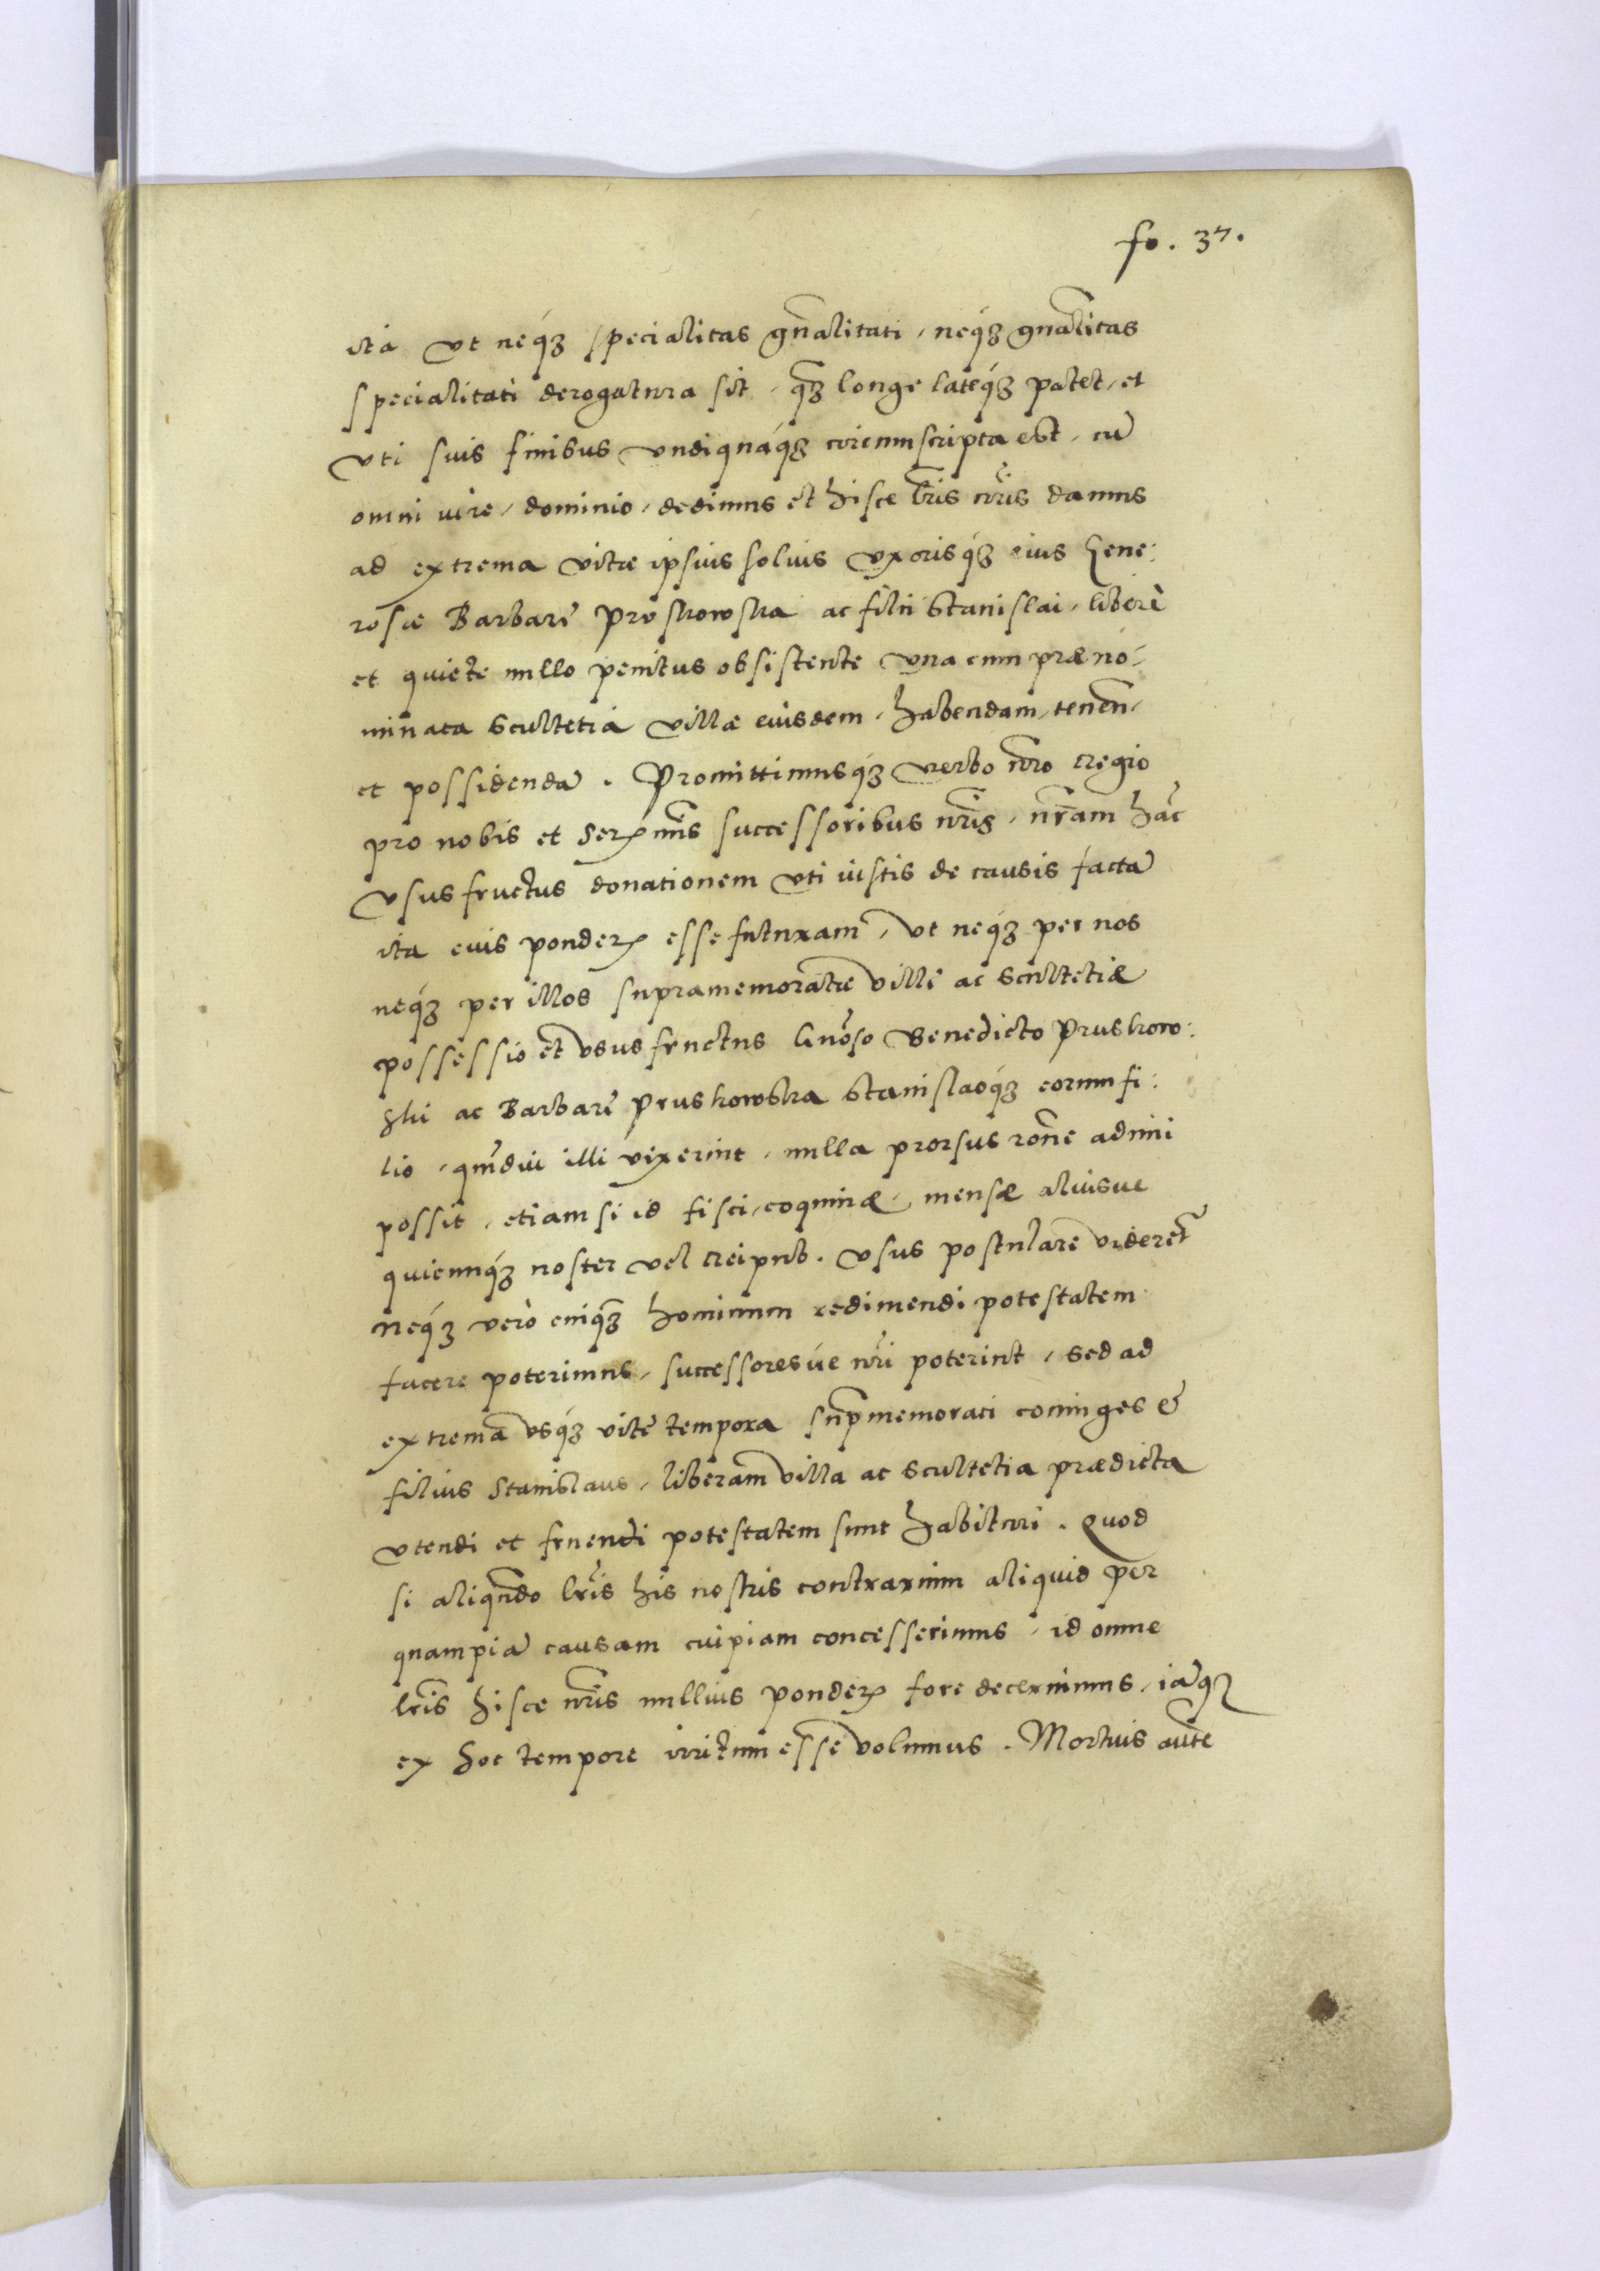 fo. 37.
ita vt neq́ꝫ specialitas gn̅alitati, neq́ꝫ gn̅alitas
specialitati derogatura sit, q̅ꝫ longe lateq́ꝫ patet, et
vti suis finibus vndiquáq́ꝫ circumscripta est, cū
omni iure, dominio, dedimus et hisce l̅ris n̅ris damus
ad extrema vitæ ipsius solius vxorisq́ꝫ eius Gene:
rosæ Barbarę Pruskowska ac filii Stanislai, liberè
et quiete nullo penitus obsistente vna cum præno:
minata Scultetia villæ eiusdem, habendam, tenen̅,
et possidendā. Promittimusq́ꝫ verbo n̅ro regio
pro nobis et Ser̅mis successoribus n̅ris, n̅ram hāc
vsus fructus donationem vti iustis de causis factā
ita euis ponderꝭ esse futuram, vt neq́ꝫ per nos
neq́ꝫ per illos supramemoratæ villę ac Scultetiæ
possessio et vsus fructus Gn̅oso Benedicto Pruskow:
ski ac Barbarę Pruskowska Stanislaoq́ꝫ eorum fi:
lio, qm̅diu illi vixerint, nulla prorsus ro̅ne adimi
possit, etiam si id fisci, coquinæ, mensæ aliusue
quicunq́ꝫ noster vel reipub. vsus postulare videret̃
Neq́ꝫ verò cuiq̅ꝫ hominum redimendi potestatem
facere poterimus, successoresúe n̅ri poterint, sed ad
extrema vsq́ꝫ vitę tempora sup̅memorati coniuges &
filius Stanislaus, liberam villa ac Scultetia prædicta
vtendi et fruendi potestatem sunt habituri. Quod
si aliqn̅do l̅ris his nostris contrarium aliquid per
quampiā causam cuipiam concesserimus, id omne
l̅ris hisce n̅ris nullius ponderꝭ fore decernimus, iāqꝫ
ex hoc tempore irritum esse volumus. Mortuis aūte